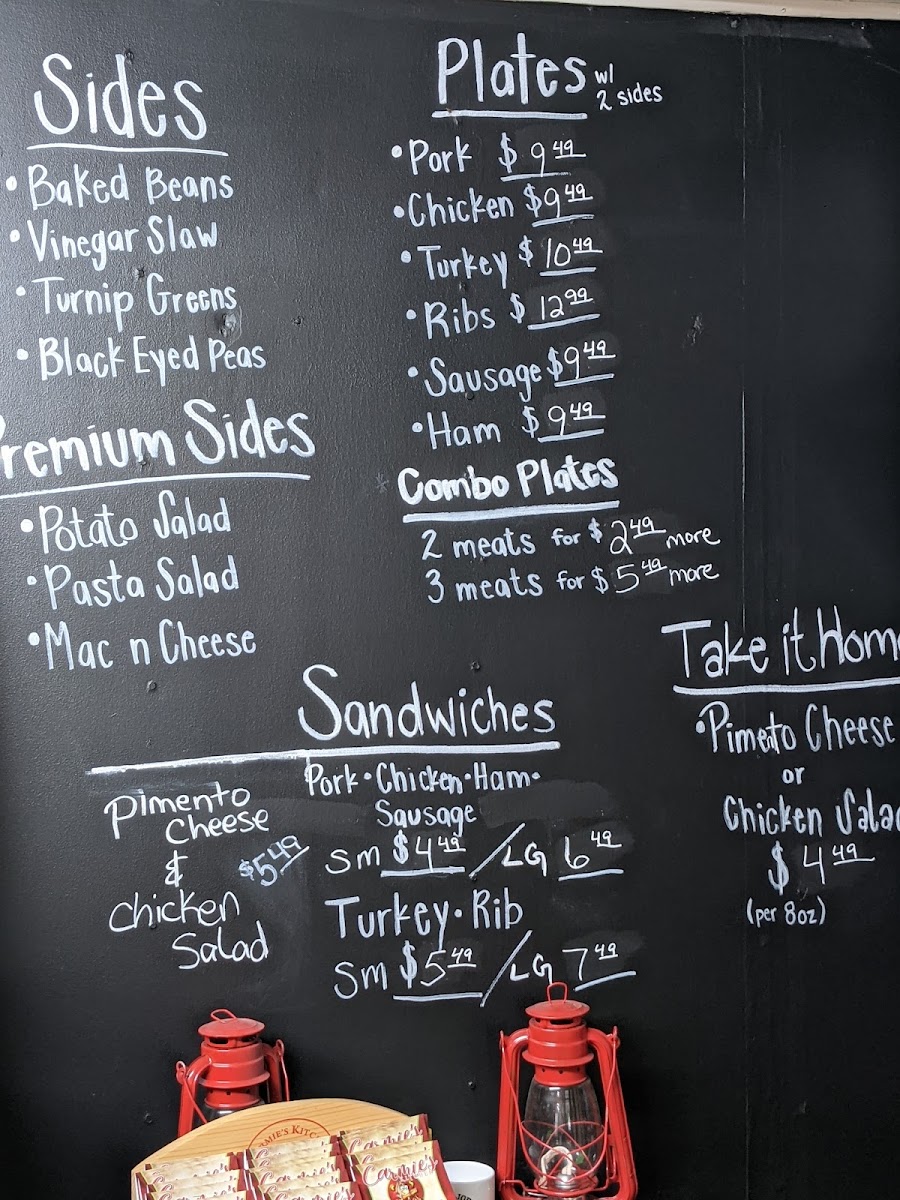 Sides
• Baked Beans
• Vinegar Slaw
• Turnip Greens
• Black Eyed Peas
remium Sides
• Potato Salad
• Pasta Salad
• Mac n Cheese
Plates w/
2 sides
• Pork $ 9 49
• Chicken $9 49
• Turkey $ 10 49
• Ribs $ 12 99
• Sausage $9 49
• Ham $ 9 49
Combo Plates
2 meats for $ 2 49 more
3 meats for $ 5 49 more
Sandwiches
Pimento
Cheese
&
Chicken
Salad
$5 49
Pork • Chicken • Ham •
Sausage
Sm $4 49 / LG 6 49
Turkey • Rib
Sm $5 49 / LG 7 49
Take it Hom
• Pimeto Cheese
or
Chicken Sala
$ 4 49
(per 8oz)
Carmie's
Carmie's